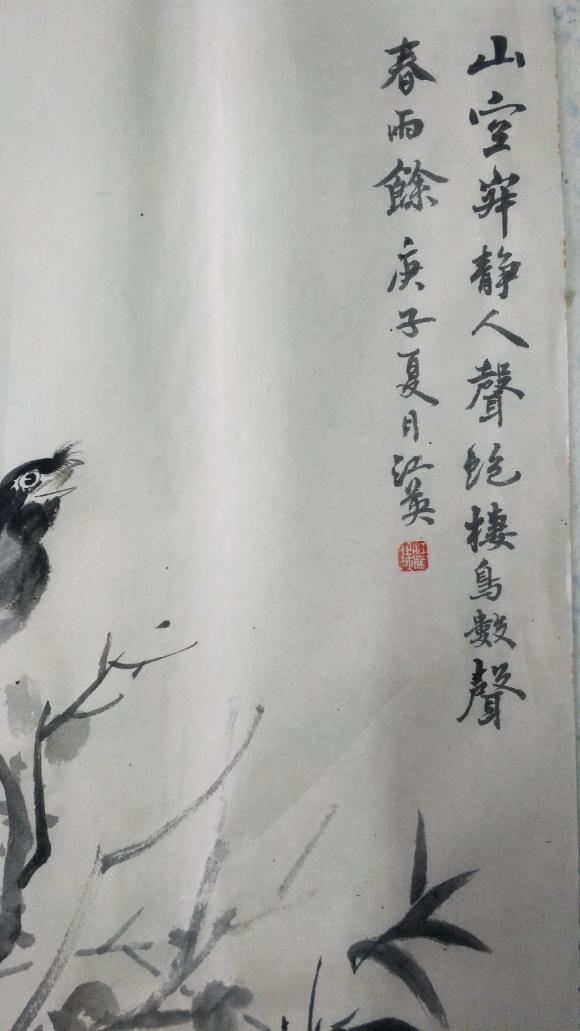 山空寂静人聲絶棲鳥數聲
春雨餘 庚子夏月江英